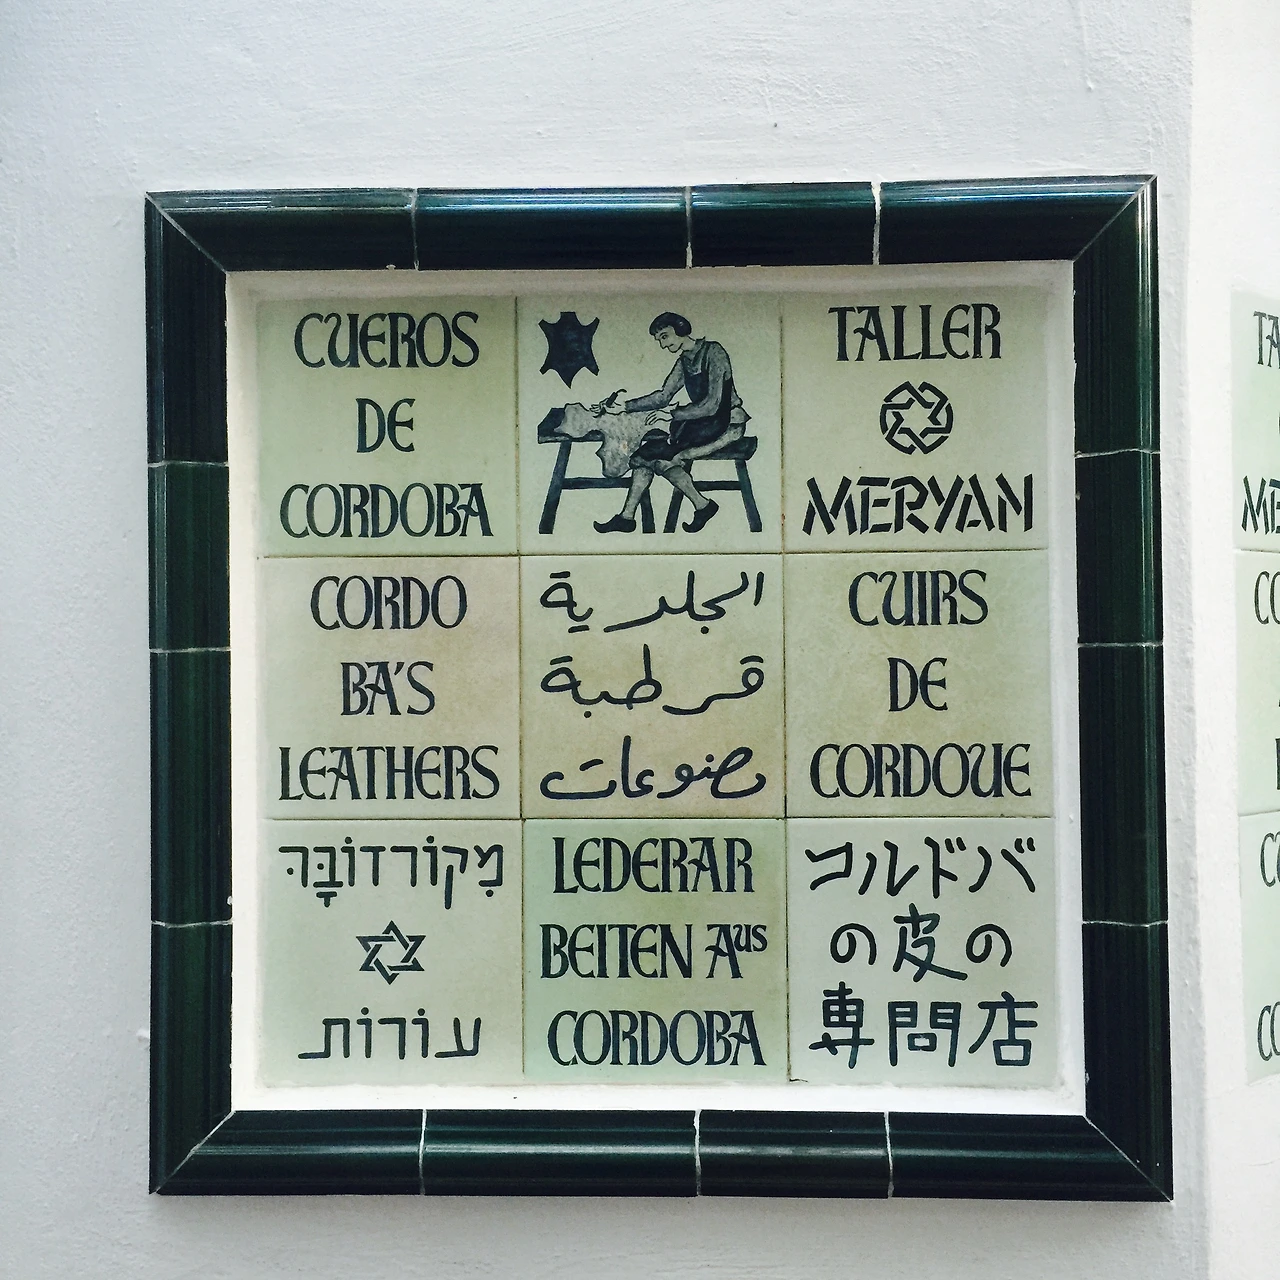 CUEROS
DE
CORDOBA
TALLER
MERYAN
CORDO
BA'S
LEATHERS
الجلدية
قرطبة
مصنوعات
CUIRS
DE
CORDOUE
מִקוֹרדוֹבָּה
עוֹרוֹת
LEDERAR
BEITEN AUS
CORDOBA
コルドバ
の皮の
専門店